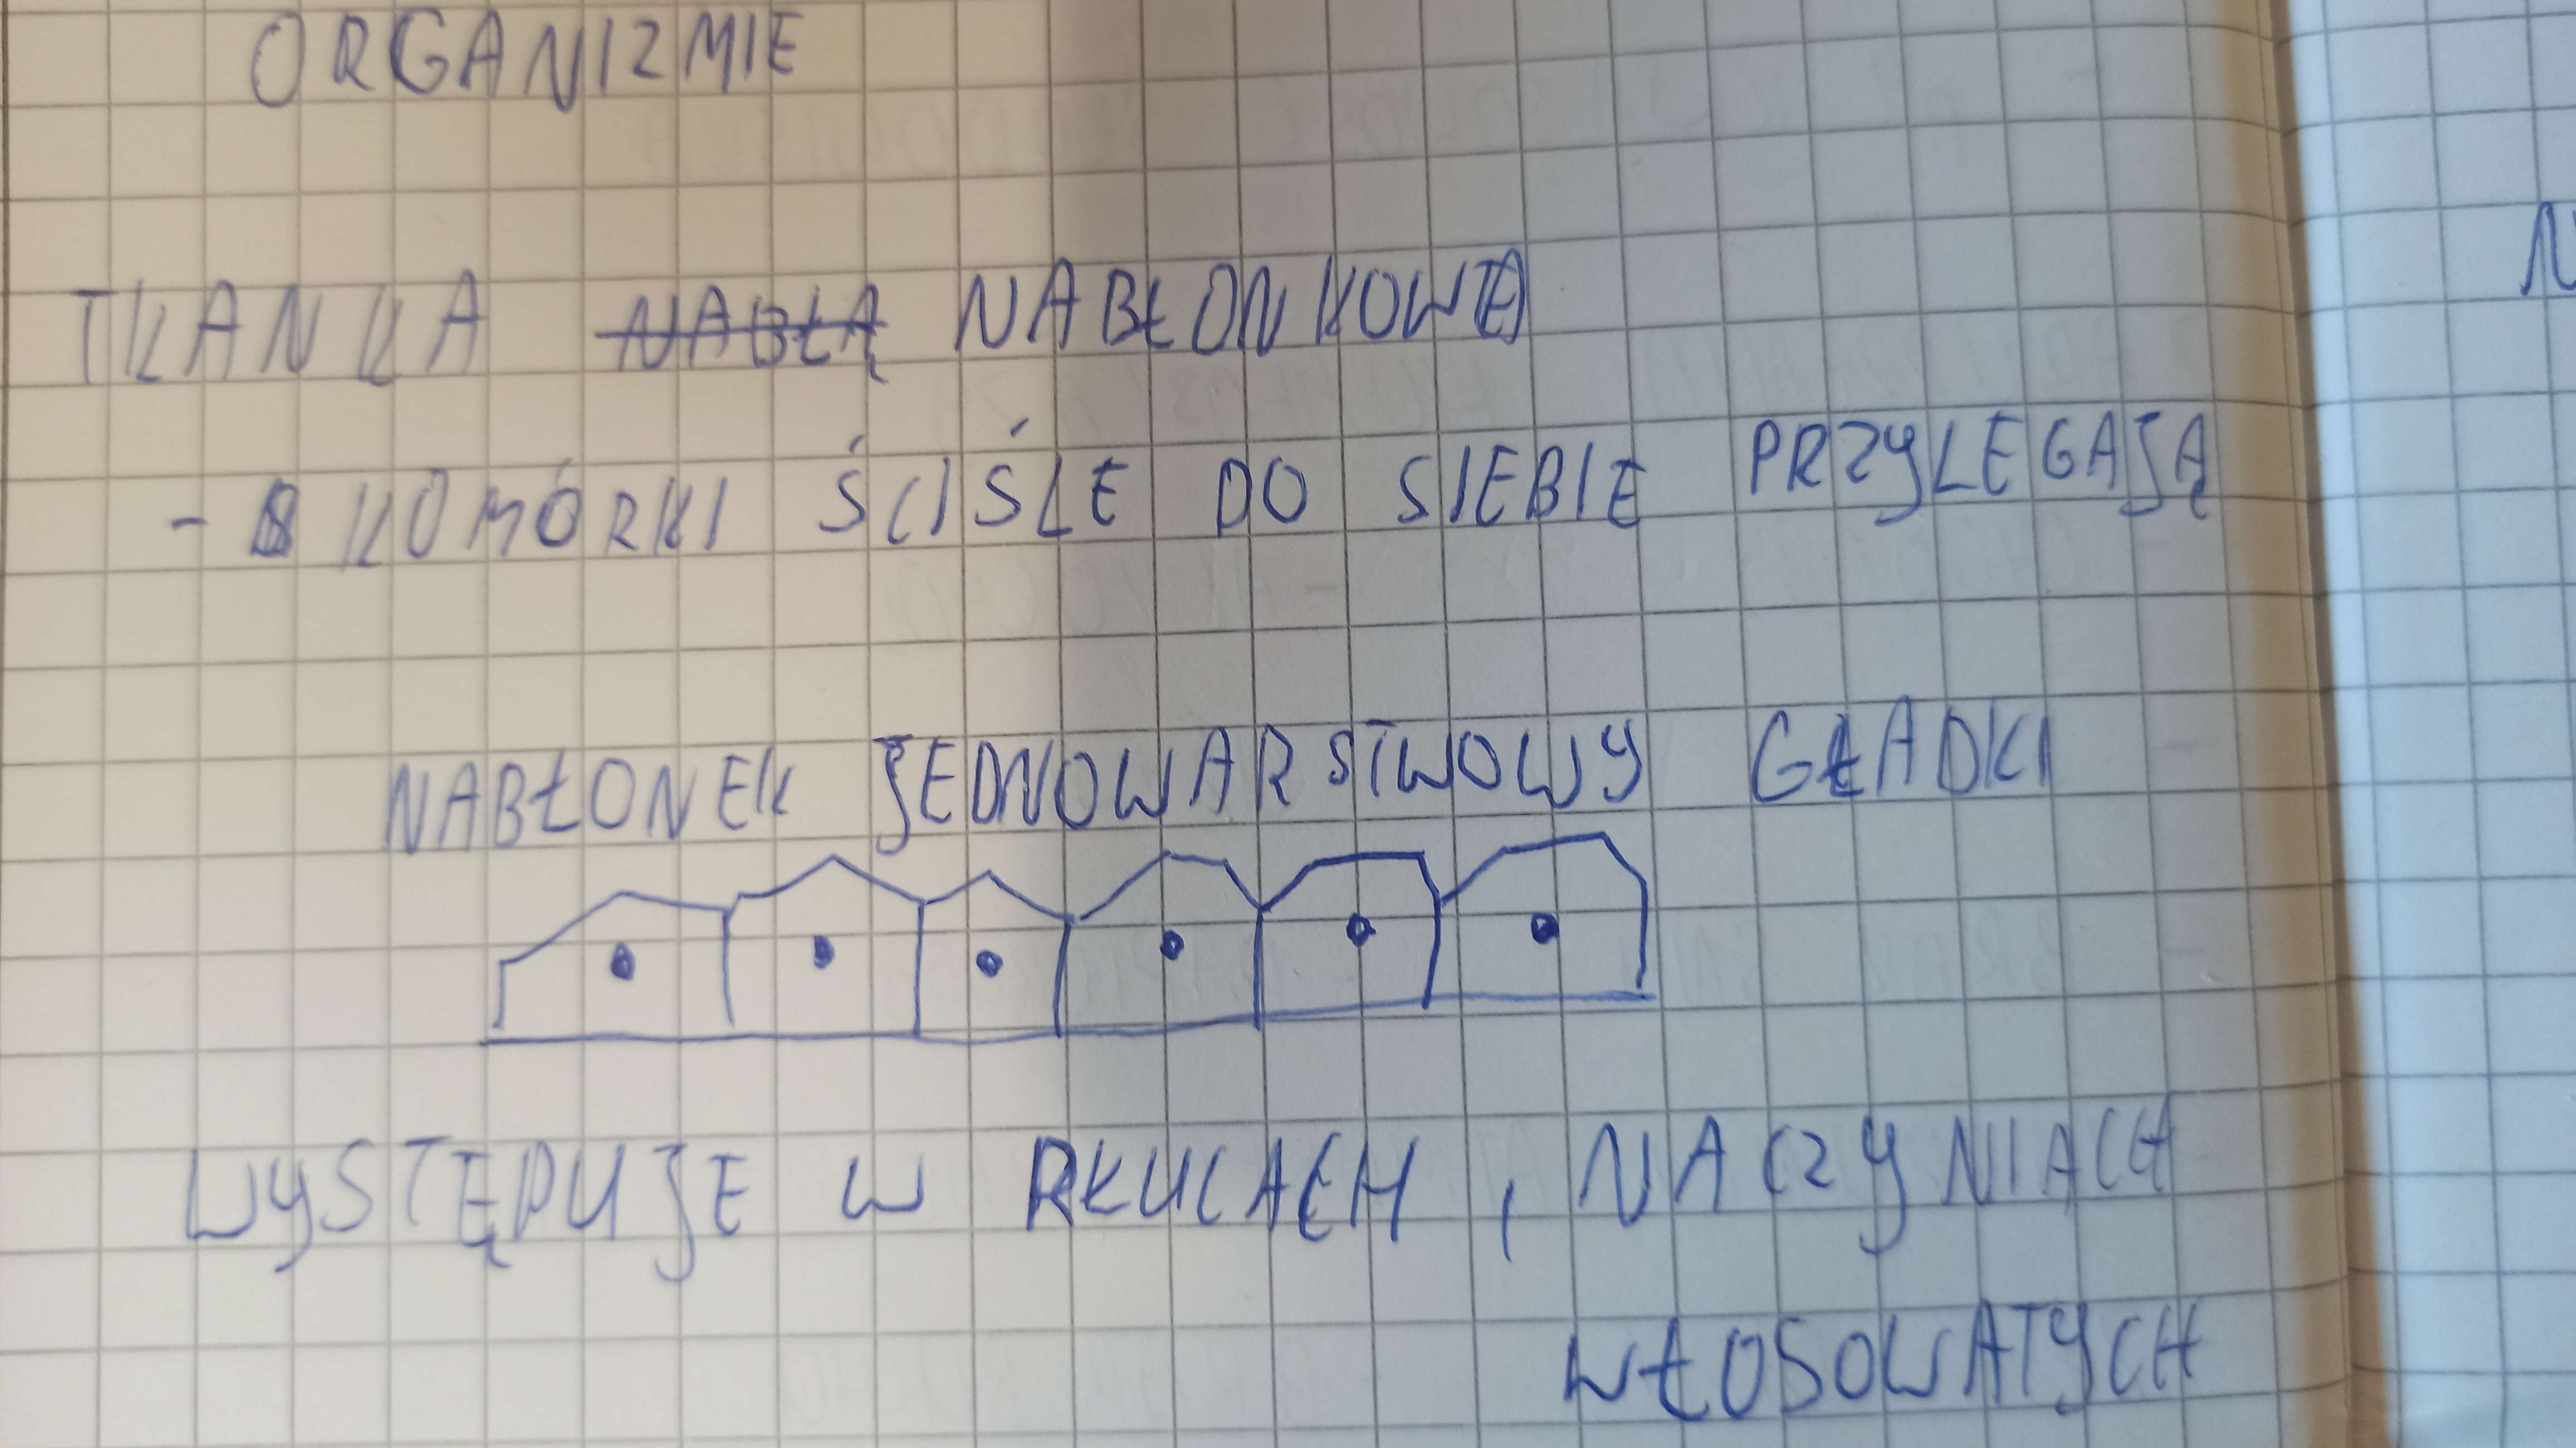 ORGANIZMIE
TKANKA NABŁĄ NABŁONKOWA
- KOMÓRKI ŚCIŚLE DO SIEBIE PRZYLEGAJĄ
NABŁONEK JEDNOWARSTWOWY GŁADKI
WYSTĘPUJE W , NACZYNIACH
WŁOSOWATYCH